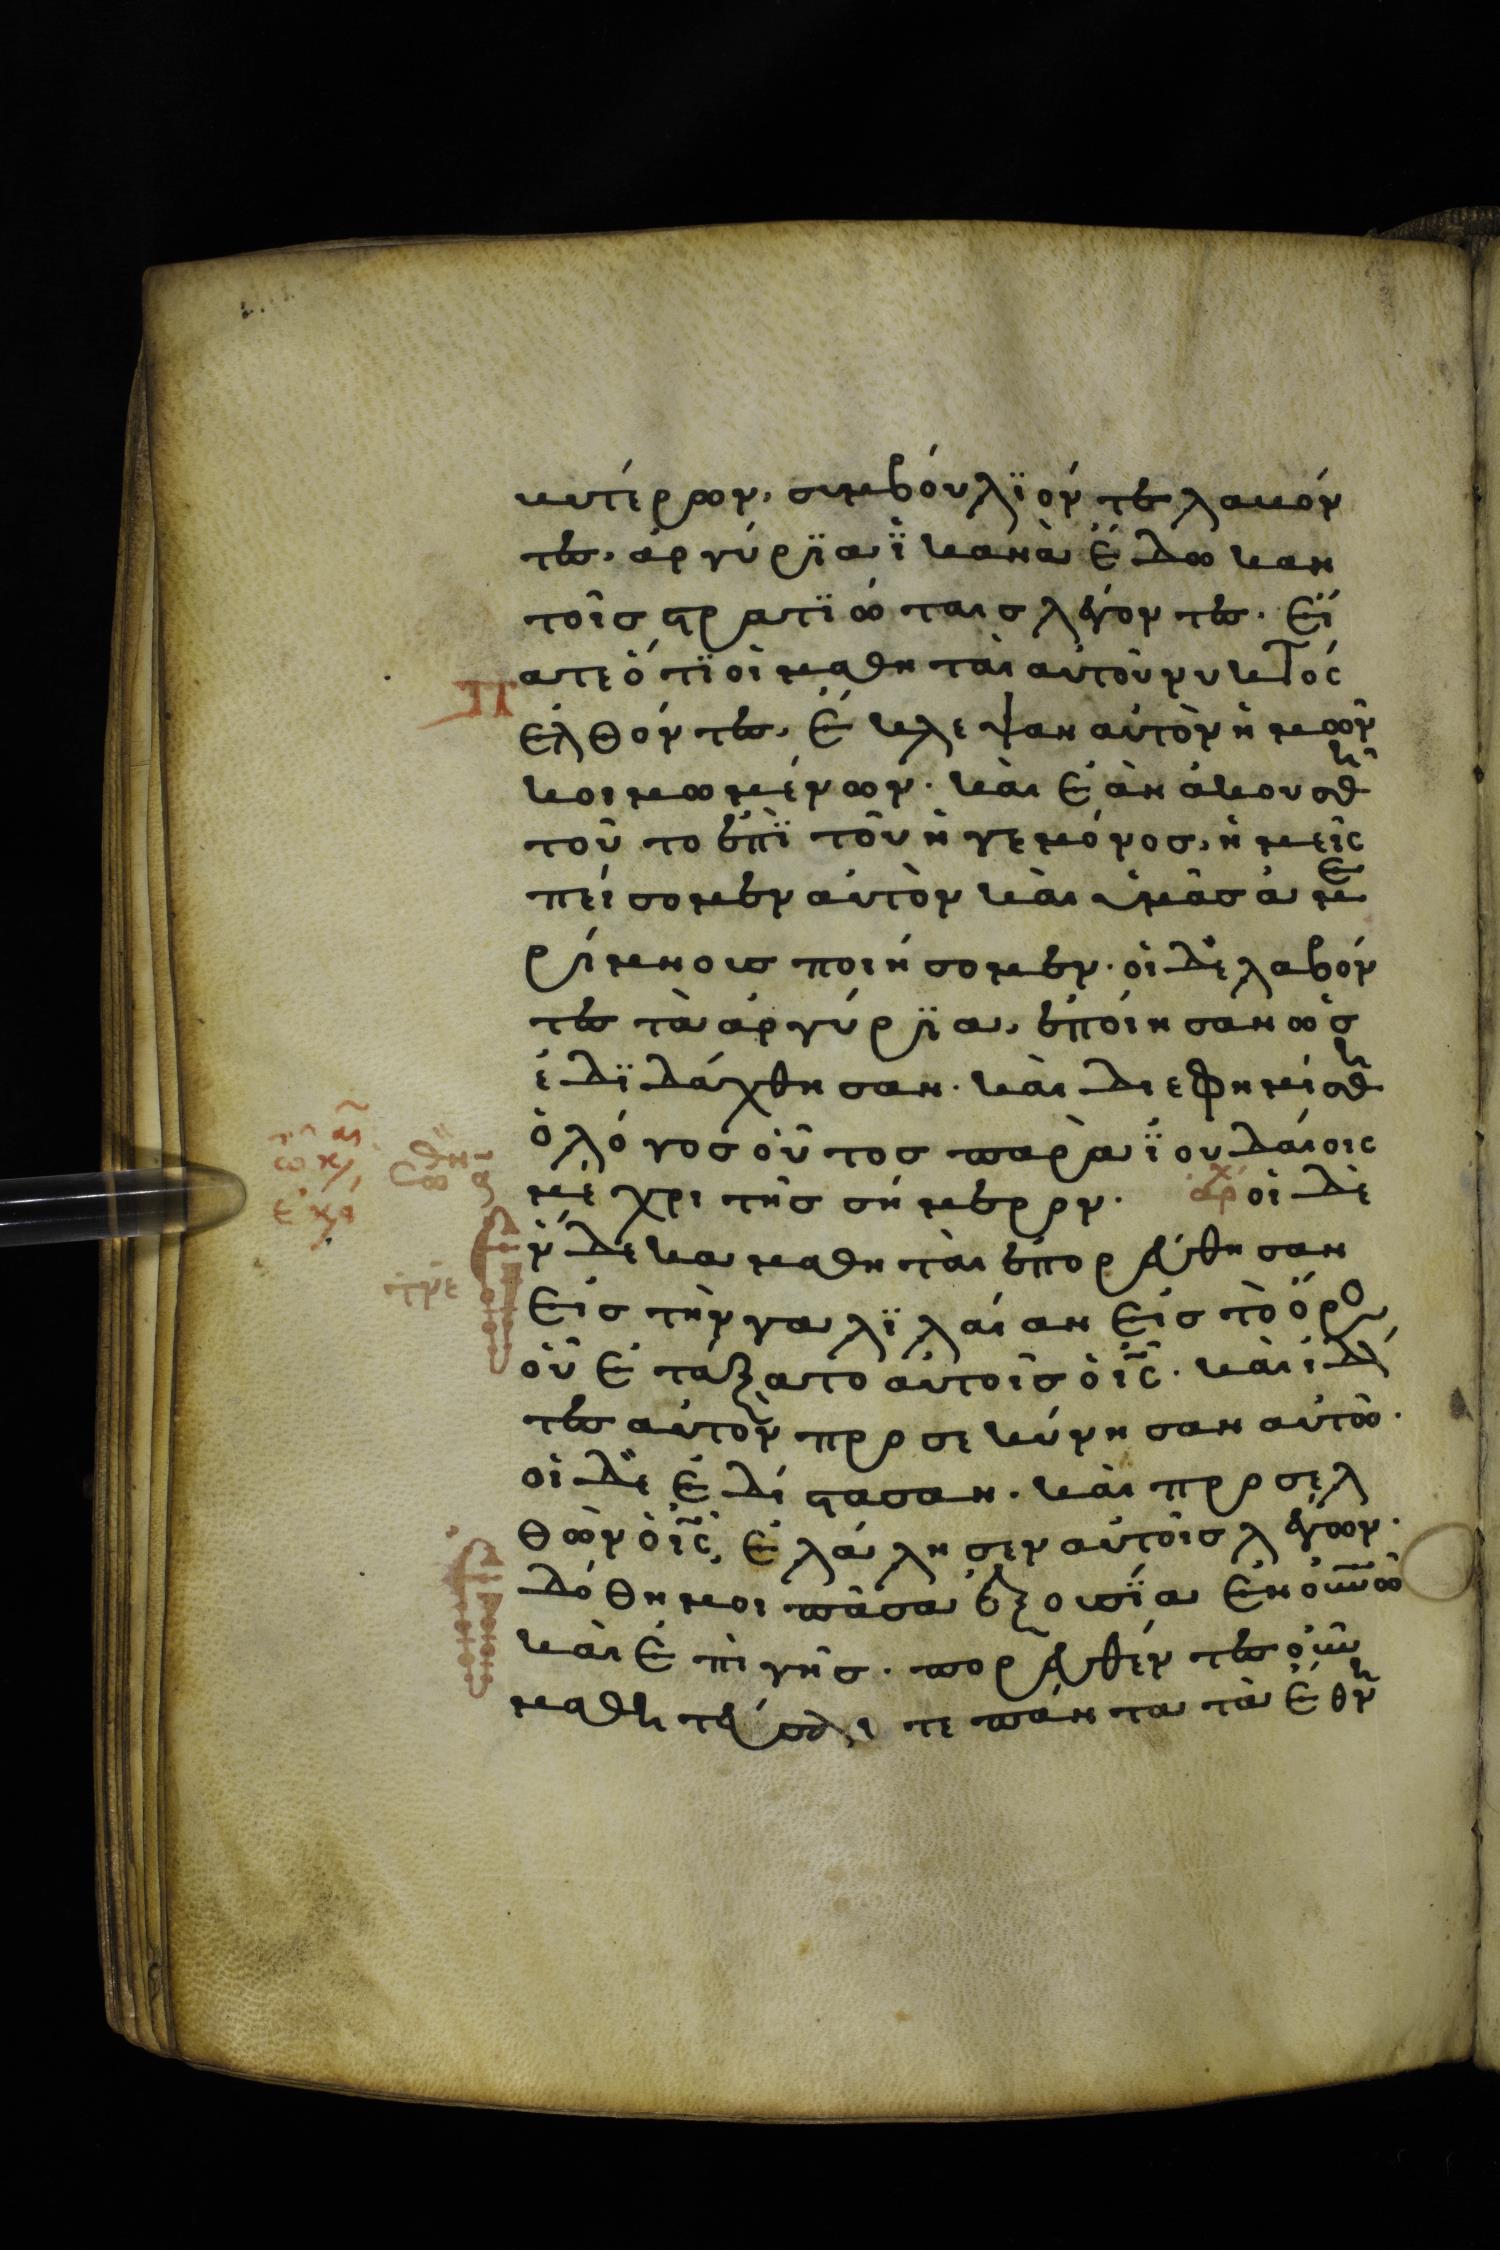 κυτέρρων, συμβούλϊόν τε λαβόν
τες, ἀργύρϊα ϊκανὰ ἔδωκαν
τοῖς στρατϊώταις λέγοντες. Εἴ
πατε ὅτϊ οἱ μαθηταὶ αὐτοῦ νυκτὸς
ἐλθόντες, ἔκλεψαν αὐτὸν ἡμῶν
κοιμωμένων. καὶ ἐὰν ἀκουσθῆ
τοῦτο ἐπῒ τοῦ ἡγεμόνος, ἡμεῖς
πείσομεν αὐτὸν καὶ ὑμᾶς ἀμε
ρίμνους ποιήσομεν. οἱ δὲ λαβόν
τες τὰ ἀργύρϊα, ἐποίησαν ὡς
ἐδϊδάχθησαν. καὶ διεφημίσθη
ὁ λόγος οὗτος παρὰ ϊουδαίοις
μέχρι τῆς σήμερον. ἀρχ οἱ δὲ
ιν δεκα μαθηταὶ ἐπορεύθησαν
Εἰς τὴν γαλϊλαίαν εἰς τὸ ὄρος
οὗ ἐτάξατο αὐτοῖς ὁ ις. καὶ ἰδόν
τες αὐτὸν προσεκύνησαν αὐτῶ.
οἱ δὲ ἐδίστασαν. καὶ προσελ
θὼν ὁ ις, ἐλάλησεν αὐτοῖς λέγων.
ἐδόθη μοι πᾶσα ἐξουσϊα ἐν οὐνῶ
καὶ ἐπὶ γῆς. πορευθέντες οὖν
μαθητεύσατε πάντα τὰ ἔθνη